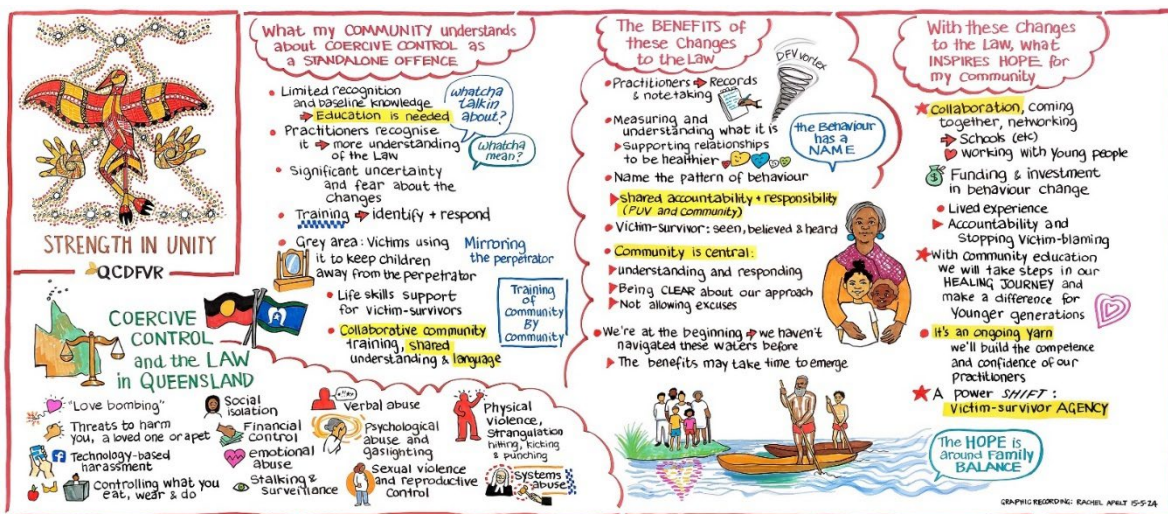 STRENGTH IN UNITY
QCDFVR
COERCIVE
CONTROL
and the LAW
in QUEENSLAND
"Love bombing"
Threats to harm
you, a loved one or a pet
Technology-based
harassment
Controlling what you
eat, wear & do
Social
isolation
Financial
control
emotional
abuse
Stalking &
Surveillance
Verbal abuse
Psychological
abuse and
gaslighting
Sexual violence
and reproductive
control
Physical
violence,
Strangulation
hitting, kicking
& punching
Systems
abuse
What my COMMUNITY understands
about COERCIVE CONTROL as
a STANDALONE OFFENCE
Limited recognition
and baseline knowledge
Education is needed
whatcha
talkin
about?
Practitioners recognise
it → more understanding
of the Law
whatcha
mean?
Significant uncertainty
and fear about the
changes
Training → identify + respond
Grey area: Victims using
it to keep children
away from the perpetrator
Mirroring
the perpetrator
Life skills support
for victim-survivors
Training
of
community
BY
Community
Collaborative community
training, shared
understanding & language
The BENEFITS of
these Changes
to the Law
DFV vortex
Practitioners → Records
& note taking
Measuring and
understanding what it is
Supporting relationships
to be healthier
the Behaviour
has a
NAME
Name the pattern of behaviour
shared accountability + responsibility
(PUV and community)
Victim-survivor: seen, believed & heard
Community is central:
understanding and responding
Being CLEAR about our approach
Not allowing excuses
We're at the beginning → we haven't
navigated these waters before
The benefits may take time to emerge
With these changes
to the Law, what
INSPIRES HOPE for
my Community
Collaboration, coming
together, networking
Schools (etc)
working with Young people
Funding & investment
in behaviour change
Lived experience
Accountability and
Stopping Victim-blaming
With community education
we will take steps in our
HEALING JOURNEY and
make a difference for
Younger generations
It's an ongoing yarn
we'll build the competence
and confidence of our
Practitioners
A power SHIFT:
Victim-survivor AGENCY
The HOPE is
around Family
BALANCE
GRAPHIC RECORDING: RACHEL APELT 15-5-24